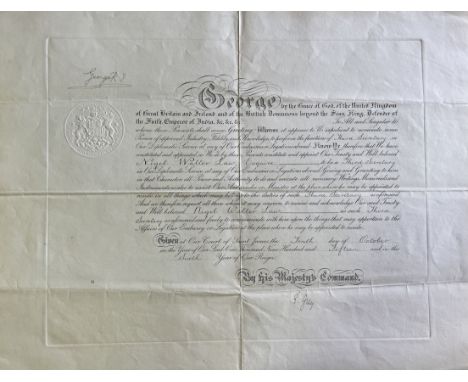 George R. I.
George
by the Grace of God, of the United Kingdom
of Great Britain and Ireland and of the British Dominions beyond the Seas, King, Defender of
the Faith, Emperor of India, &c, &c, &c. To All and Singular to
whom these Presents shall come Greeting. Whereas it appears to Us expedient to nominate some
Person of approved Industry, Fidelity and Knowledge, to perform the functions of Third Secretary in
Our Diplomatic Service at any of Our Embassies or Legations abroad, Now Know Ye therefore that We have
constituted and appointed as We do by these Presents constitute and appoint Our Trusty and Well-beloved
Nigel Walter Law Esquire to be a Third Secretary
in Our Diplomatic Service at any of Our Embassies or Legations abroad, Giving and Granting to him
in that Character all Power and Authority to do and execute all necessary Writings, Memorials and
Instruments, to assist Our Ambassador or Minister at the place where he may be appointed to
reside in all things which may belong to the duties of such Third Secretary
And we therefore request all those whom it may concern to receive and acknowledge Our said Trusty
and Well-beloved Nigel Walter Law as such Third
Secretary and freely to communicate with him upon the things that may appertain to the
Affairs of Our Embassy or Legation at the place where he may be appointed to reside.
Given at Our Court of Saint James, the Tenth day of October
in the Year of Our Lord One thousand Nine Hundred and Fifteen and in the
Sixth Year of Our Reign.
By His Majesty's Command.
E. Grey